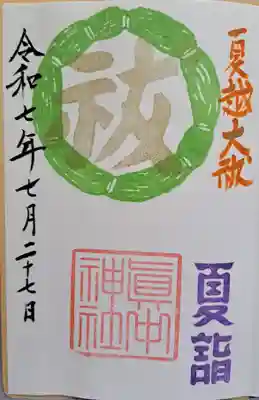 夏越大祓
夏詣
祓
眞中
神社
令和七年七月二十七日